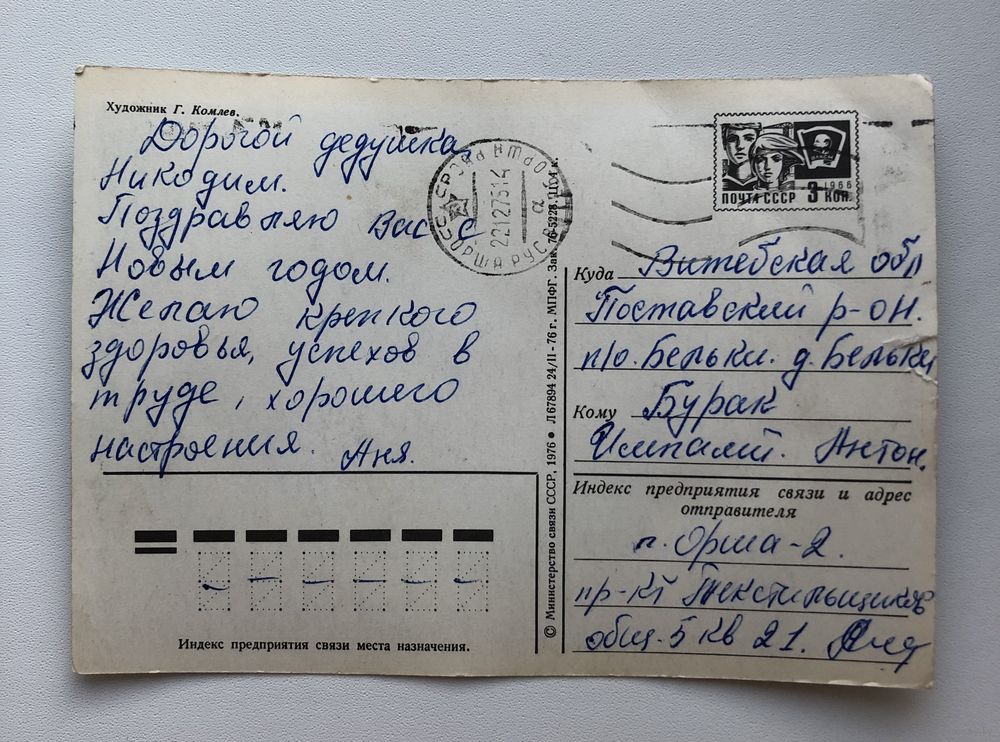 Художник Г. Комлев.
Дорогой дедушка
Никодим.
Поздравляю Вас с
Новым годом.
Желаю крепкого
здоровья, успехов в
труде, хорошего
настроения. Аня.
Индекс предприятия связи места назначения.
© Министерство связи СССР, 1976 ● Л 67894 24/II-76 г. МПФГ. Зак. 76-5228. Ц. 4 к.
СССР ОРША ВТБ ОБЛ
22127614
а
ОРША РУС
1966
ПОЧТА СССР 3 КОП.
Куда Витебская обл
Поставский р-он.
п/о. Бельки. д. Бельки
Кому Бурак
Антон.
Индекс предприятия связи и адрес
отправителя
г. Орша-2.
пр-кт Текстильщиков
общ-5 кв 21.